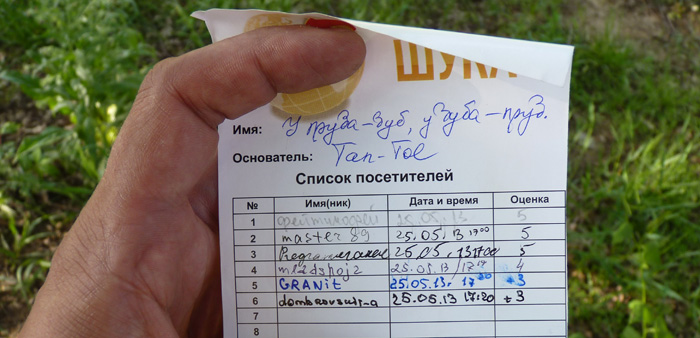 ШУКА
Имя: У пруда-зуб, у зуба-пруд.
Основатель: Tan-Toe
Список посетителей
№ Имя(ник) Дата и время Оценка
1 25.05.13 5
2 master89 25.05.13 17:00 5
3 25.05.13 17:00 5
4 25.05.13 / 17 4
5 GRANit 25.05.13. 17 +3
6 25.05.13 17:20 +3
7
8